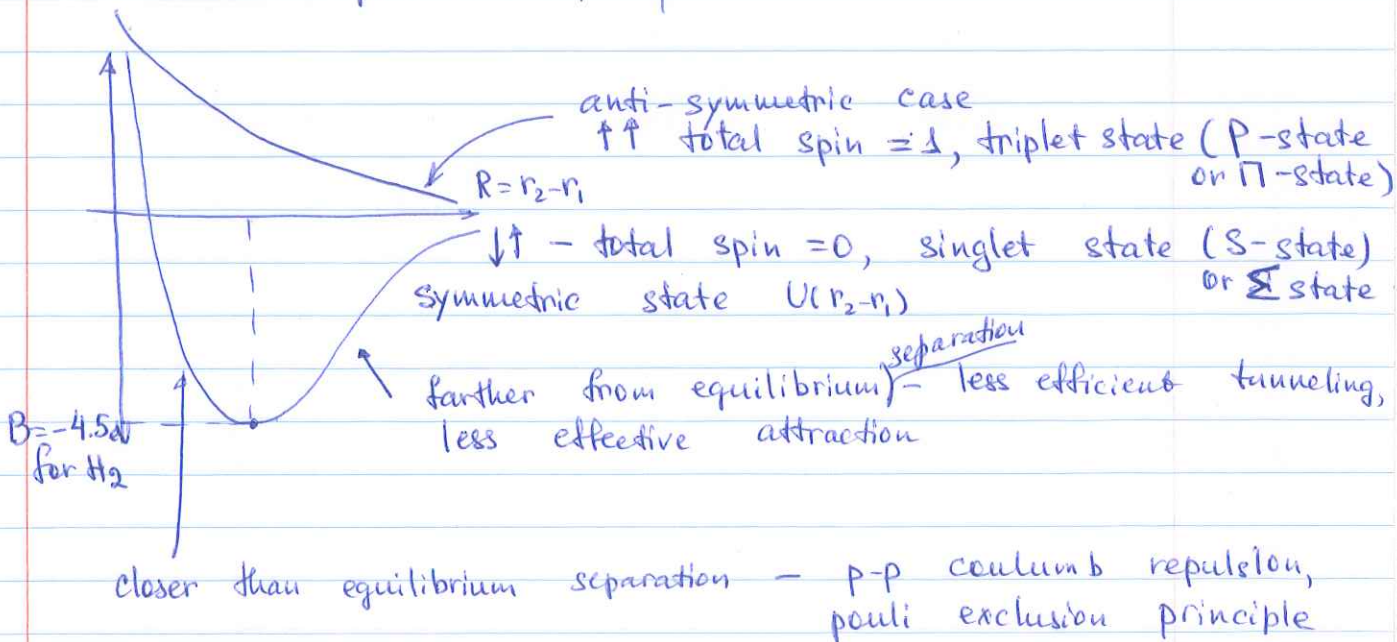 anti-symmetric case
↑↑ total spin = 1, triplet state (P-state
or Π-state)
R = r₂-r₁
↓↑ - total spin = 0, singlet state (S-state)
or Σ state
symmetric state U(r₂-r₁)
separation
farther from equilibrium) - less efficient tunneling,
less effective attraction
B=-4.5eV
for H₂
closer than equilibrium separation - p-p coulumb repulsion,
pouli exclusion principle